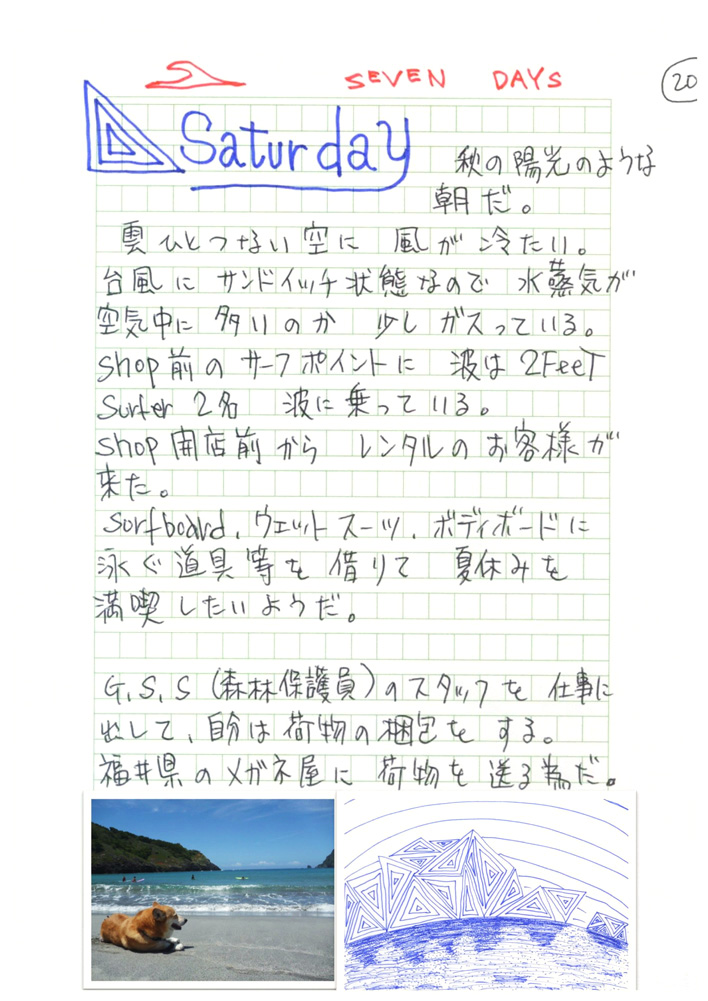 SEVEN DAYS
20
Saturday
秋の陽光のような
朝だ。
雲ひとつない空に 風が冷たい。
台風にサンドイッチ状態なので 水蒸気が
空気中に多いのか 少しガスっている。
shop前のサーフポイントに 波は2FeeT
Surfer 2名 波に乗っている。
shop開店前から レンタルのお客様が
来た。
Surfboard.ウェットスーツ.ボディボードに
泳ぐ道具等を借りて 夏休みを
満喫したいようだ。
G.S.S(森林保護員)のスタッフを仕事に
出して、自分は荷物の梱包をする。
福井県のメガネ屋に 荷物を送る為だ。